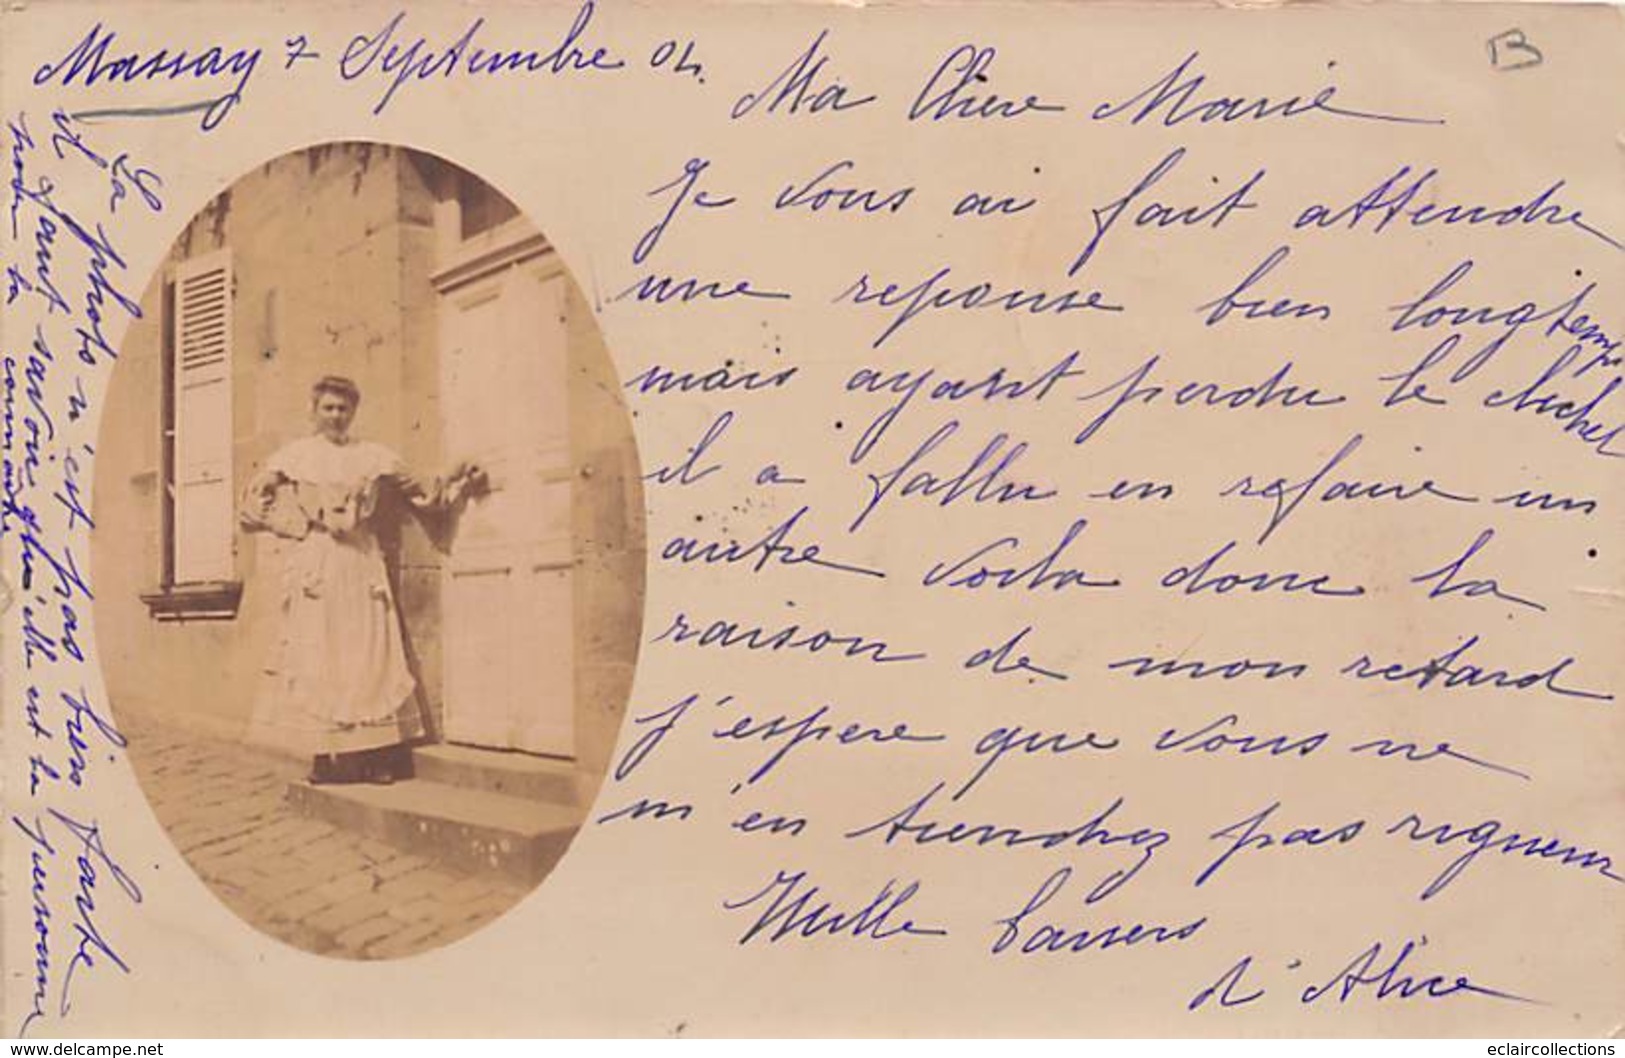 Massay 7 Septembre 04.
B
Ma Chère Marie
Je vous ai fait attendre
une reponse bien longtemps
mais ayant perdu le cliché
il a fallu en refaire un
autre voila donc la
raison de mon retard
J'espere que vous ne
m'en tiendrez pas rigueur
Mille baisers
d'Alice
La photo n'est pas bien forte
il faut savoir qu'elle est la personne
pour la connaitre
www.delcampe.net
eclaircollections